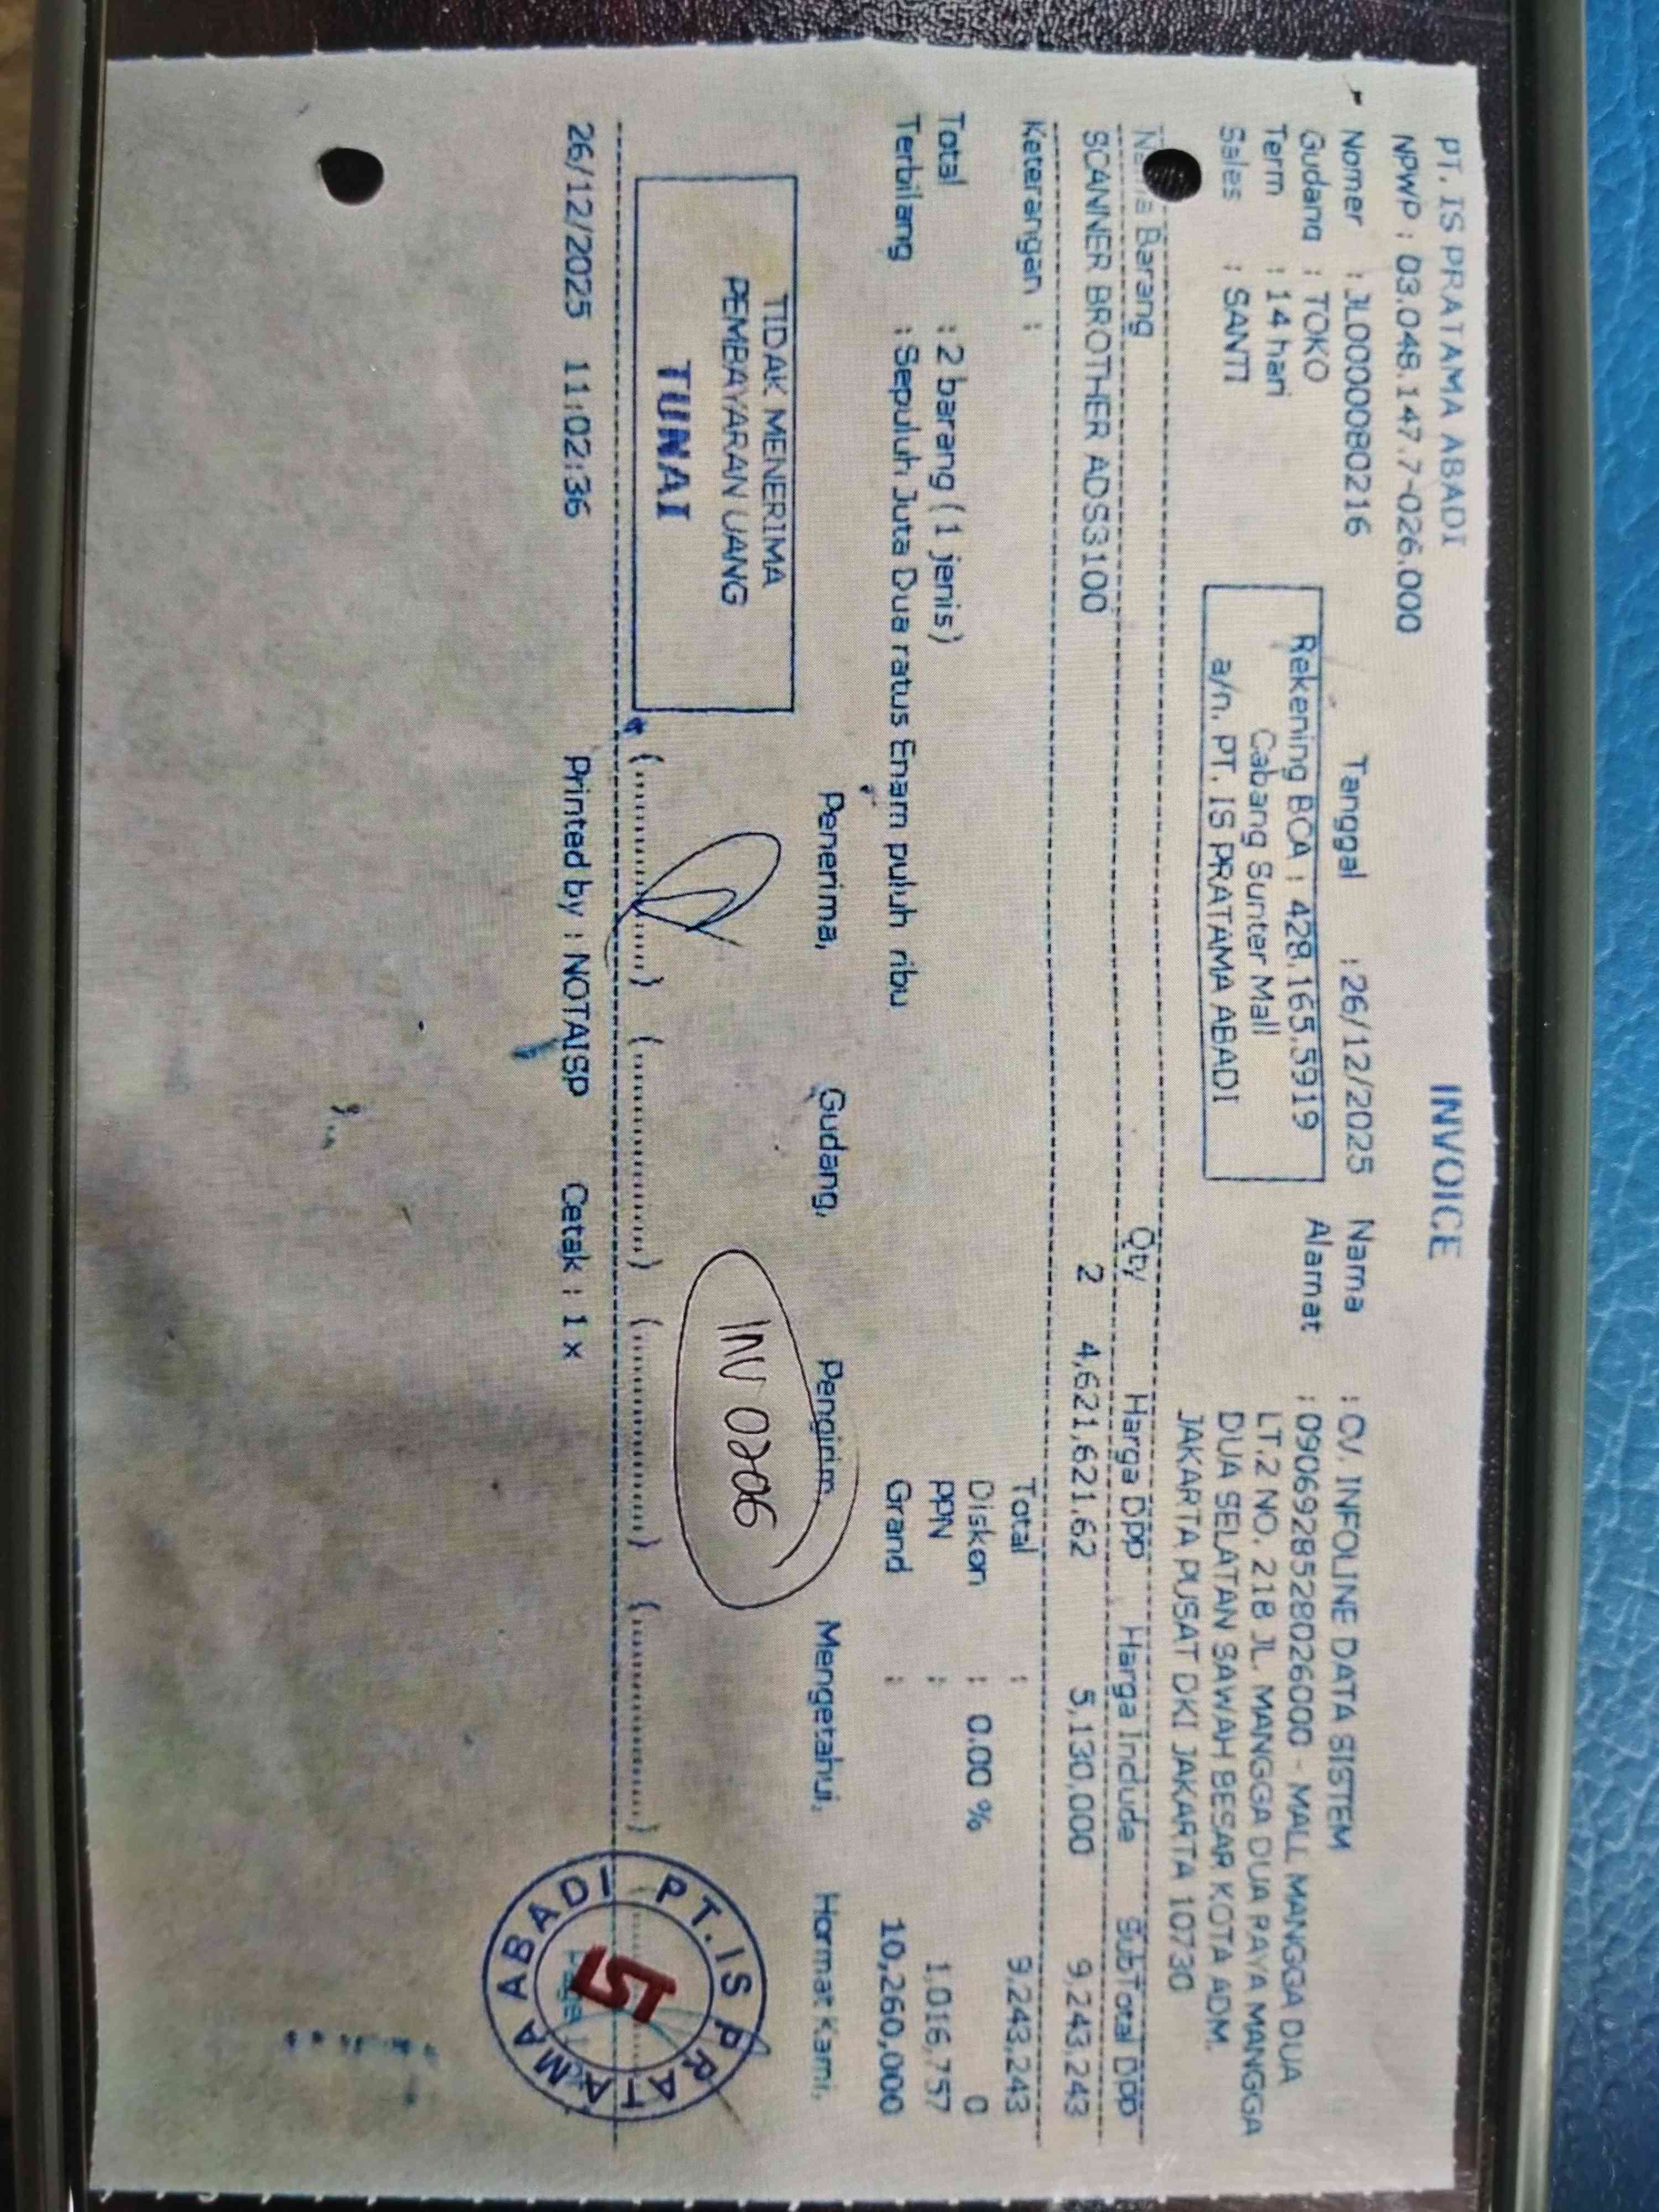 PT. IS PRATAMA ABADI
INVOICE
NPWP : 03.048.147.7-026.000
Nomer : JL0000080216
Tanggal : 26/12/2025
Nama : CV. INFOLINE DATA SISTEM
Gudang : TOKO
Rekening BCA : 428.165.5919
Alamat : 0906928528026000 - MALL MANGGA DUA
Term : 14 hari
Cabang Sunter Mall
LT.2 NO. 21B JL. MANGGA DUA RAYA MANGGA
Sales : SANTI
a/n. PT. IS PRATAMA ABADI
DUA SELATAN SAWAH BESAR KOTA ADM.
JAKARTA PUSAT DKI JAKARTA 10730
Nama Barang Qty Harga Dpp Harga Include SubTotal Dpp
SCANNER BROTHER ADS3100 2 4,621,621.62 5,130,000 9,243,243
Keterangan :
Total : 9,243,243
Diskon : 0.00 % 0
Total : 2 barang (1 jenis)
PPN : 1,016,757
Terbilang : Sepuluh Juta Dua ratus Enam puluh ribu
Grand : 10,260,000
Penerima, Gudang, Pengirim, Mengetahui, Hormat Kami,
TIDAK MENERIMA
PEMBAYARAN UANG
TUNAI
INV 0206
PT. IS PRATAMA ABADI
26/12/2025 11:02:36 Printed by : NOTAISP Cetak : 1 x